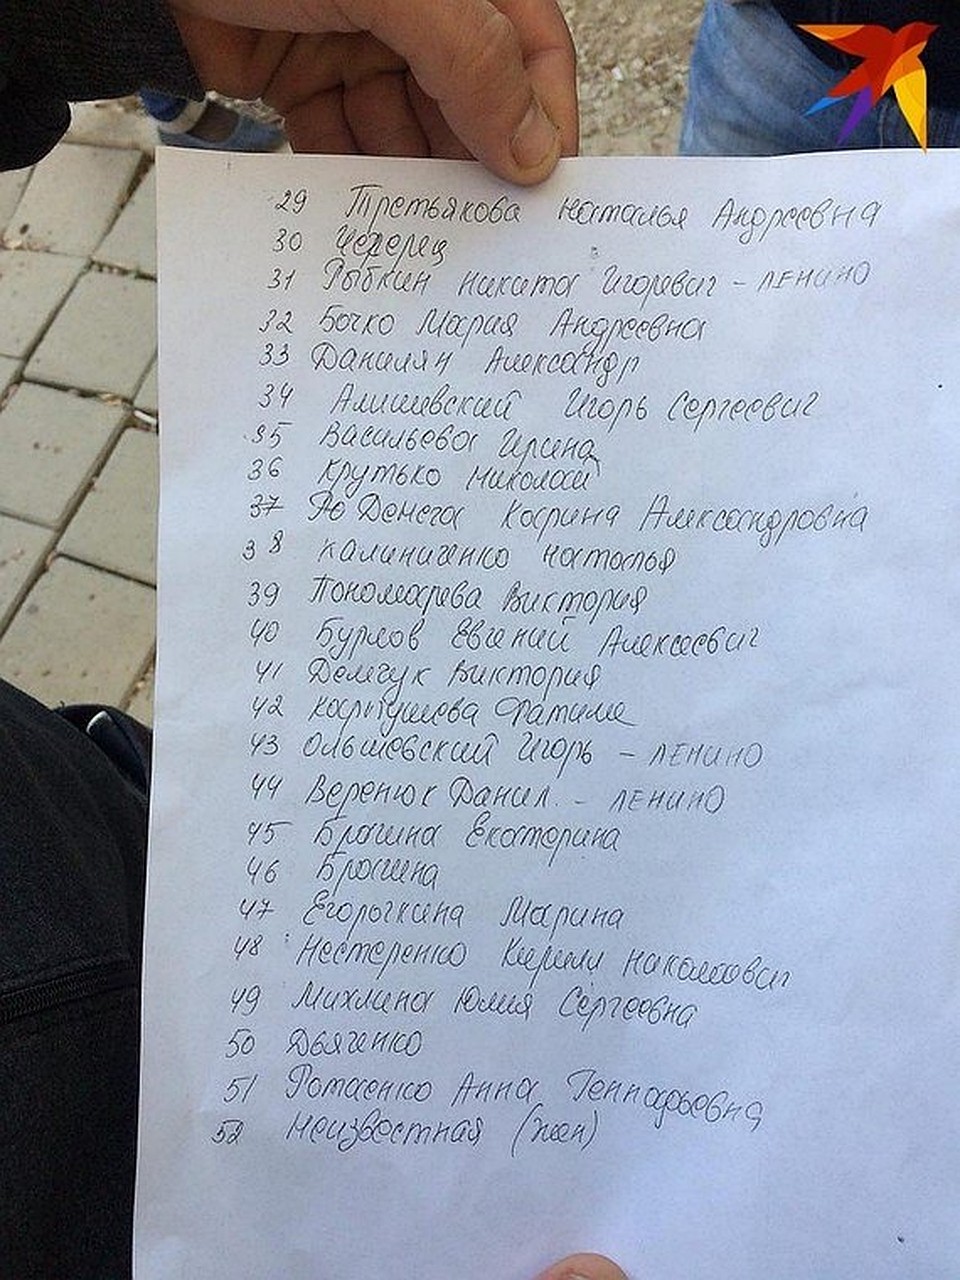 29 Третьякова Наталья Андреевна
30 Черерец
31 Рыбкин Никита Игоревич - ЛЕНИНО
32 Бочко Мария Андреевна
33 Данилян Александр
34 Алишевский Игорь Сергеевич
35 Васильева Ирина
36 Крутько Николай
37 Денега Карина Александровна
38 Калиниченко Наталья
39 Пономарева Виктория
40 Бурлов Евгений Алексеевич
41 Демчук Виктория
42 Карпушева Фатиме
43 Ольшевский Игорь - ЛЕНИНО
44 Веренюк Данил. - ЛЕНИНО
45 Брагина Екатерина
46 Брагина
47 Егорочкина Марина
48 Нестеренко Кирилл Николаевич
49 Михлина Юлия Сергеевна
50 Дьяченко
51 Ромаенко Анна Геннадьевна
52 Неизвестная (жен)